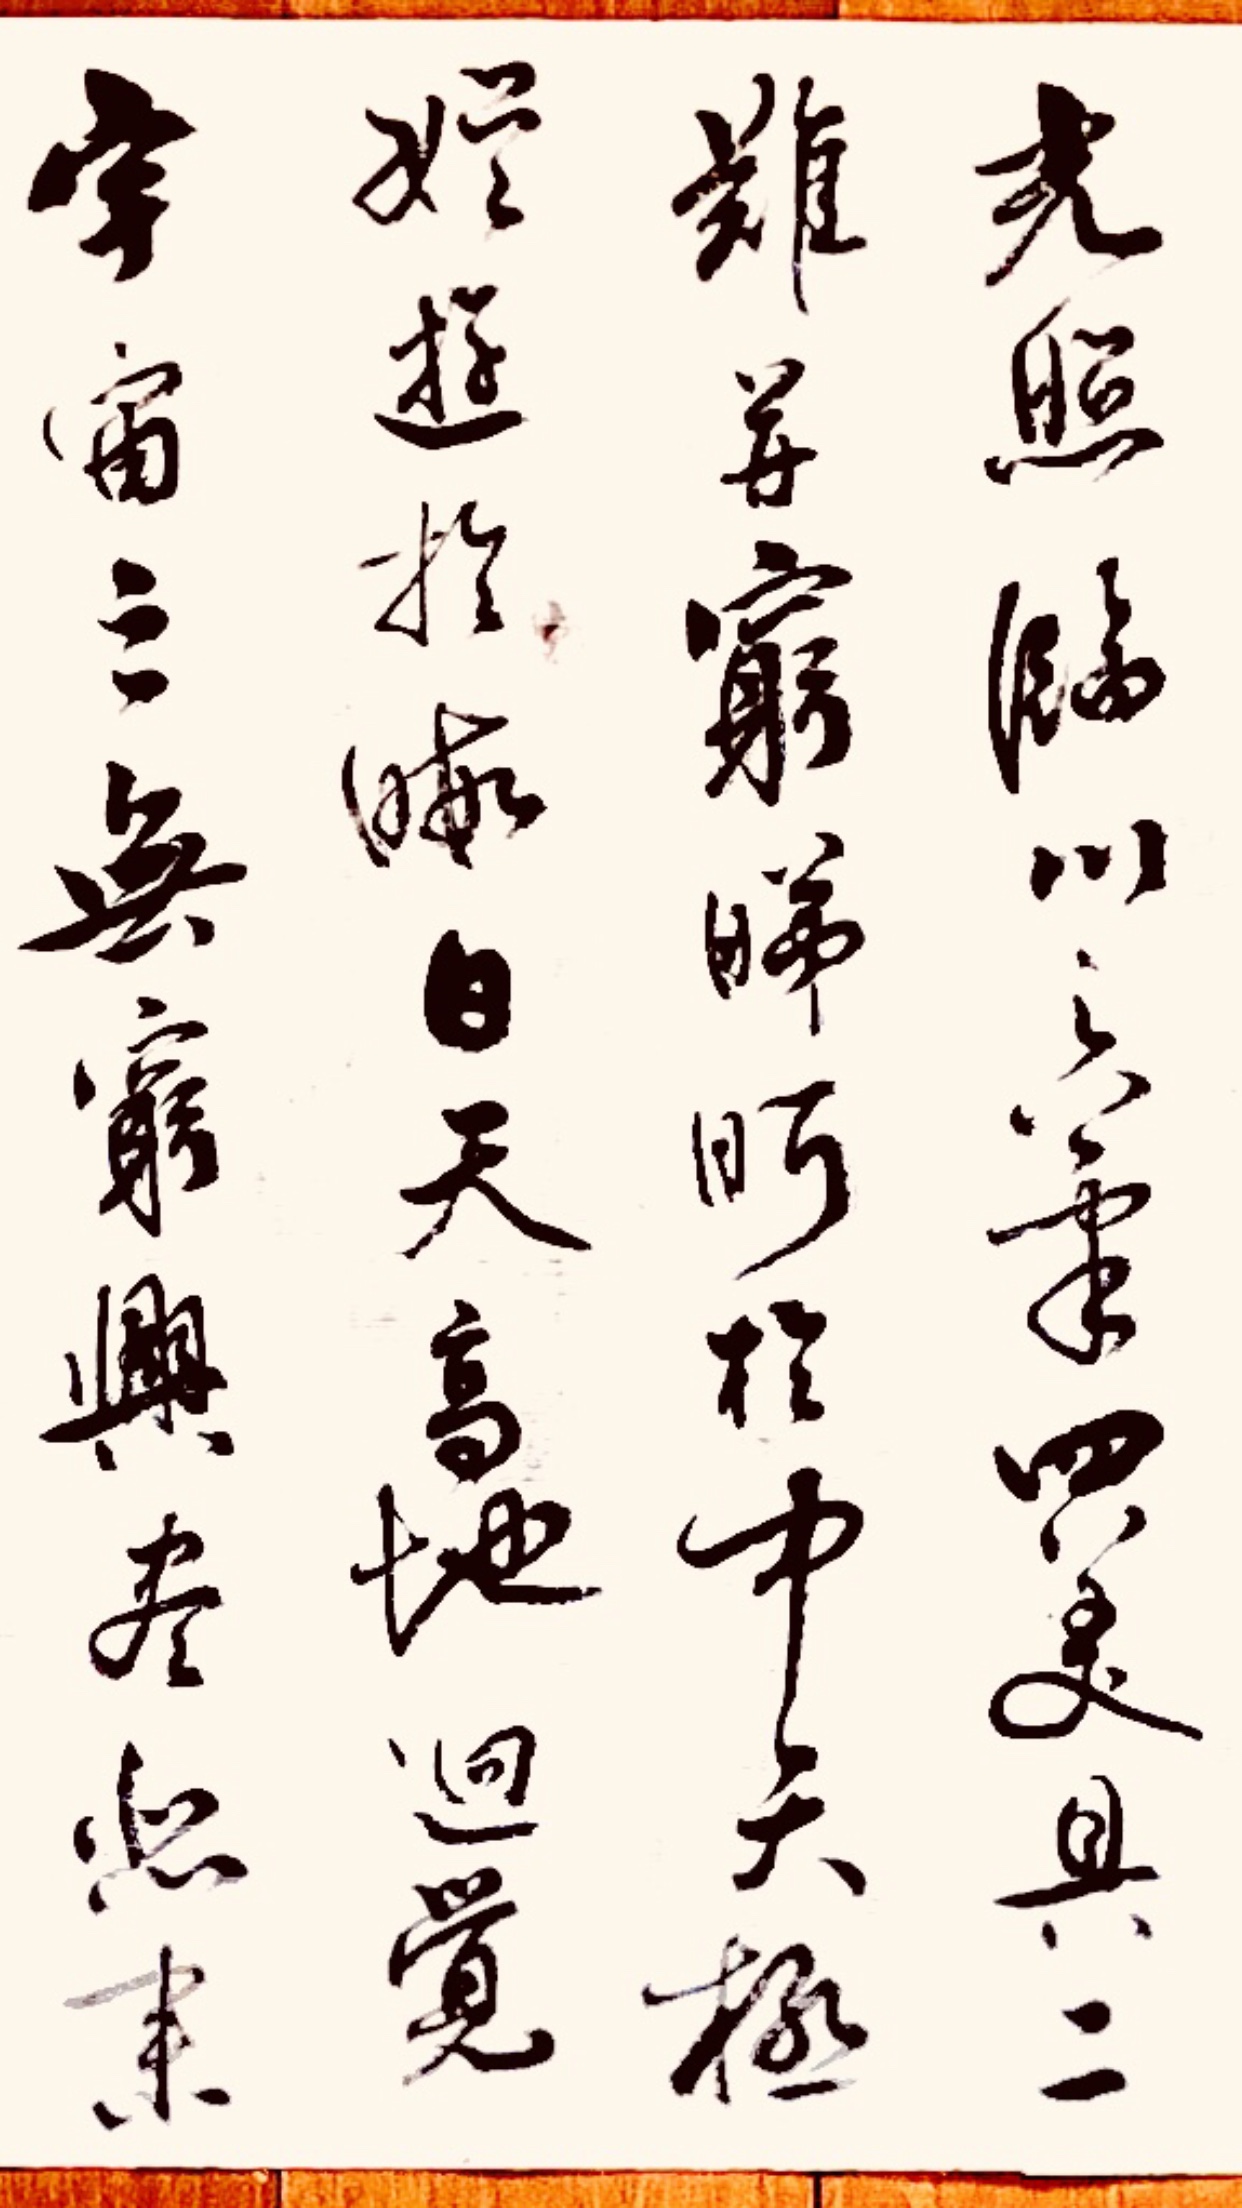 光照臨川之筆四美具二
難并窮睇眄於中天極
娱遊於暇日天高地迥覺
宇宙之無窮興盡悲来